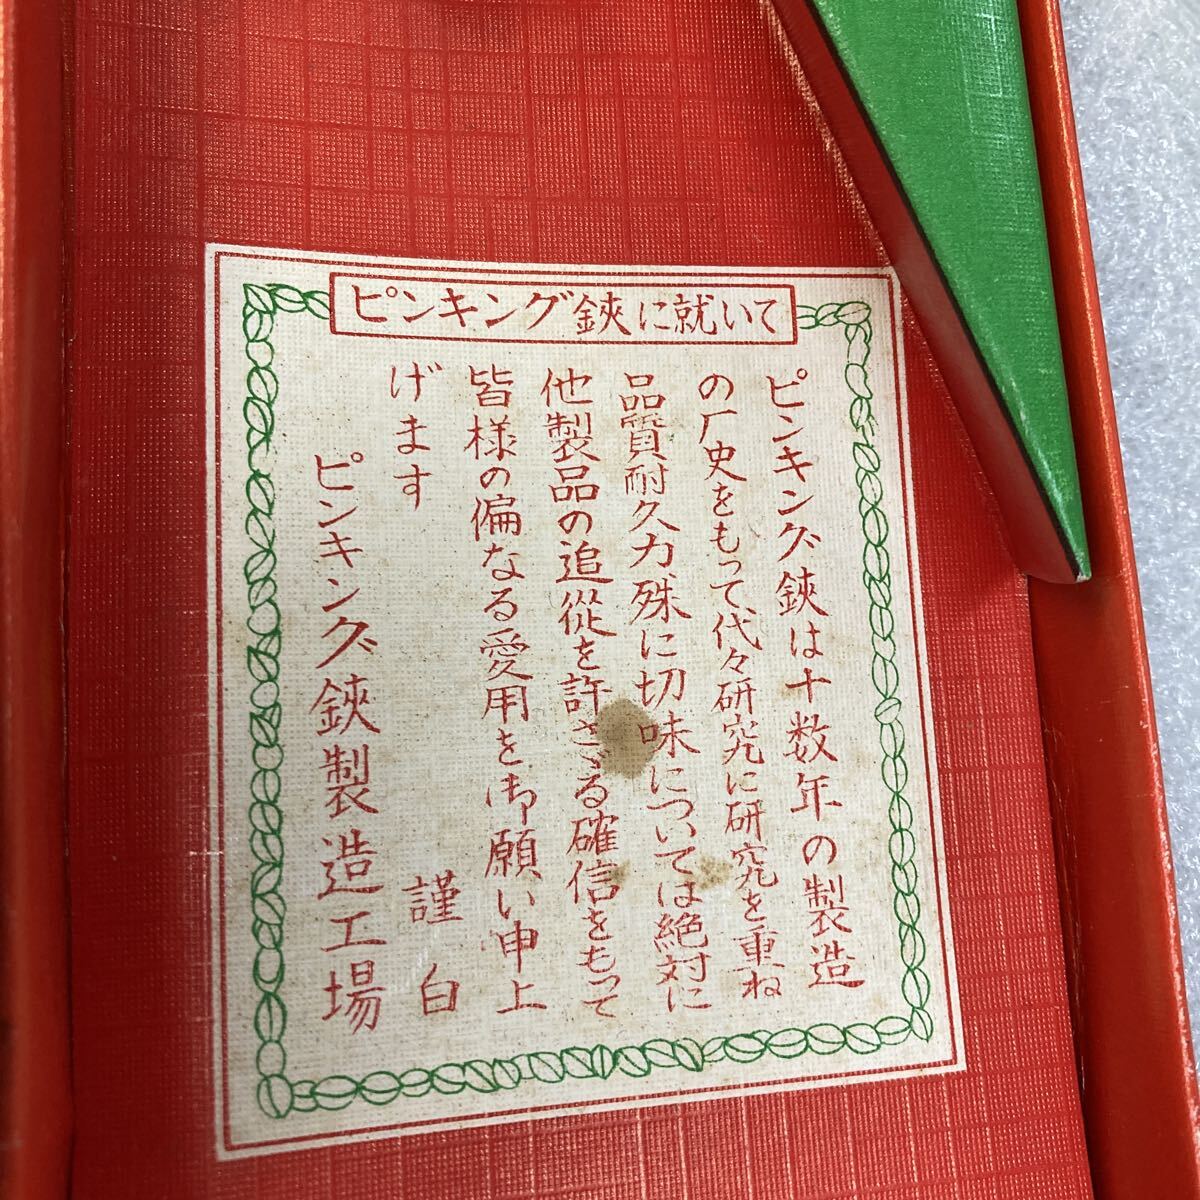 ピンキング鋏に就いて
ピンキング鋏は十数年の製造
の厂史をもって代々研究に研究を重ね
品質耐久力殊に切味については絶対に
他製品の追従を許さゞる確信をもって
皆様の偏なる愛用を御願い申上
げます
謹白
ピンキング鋏製造工場